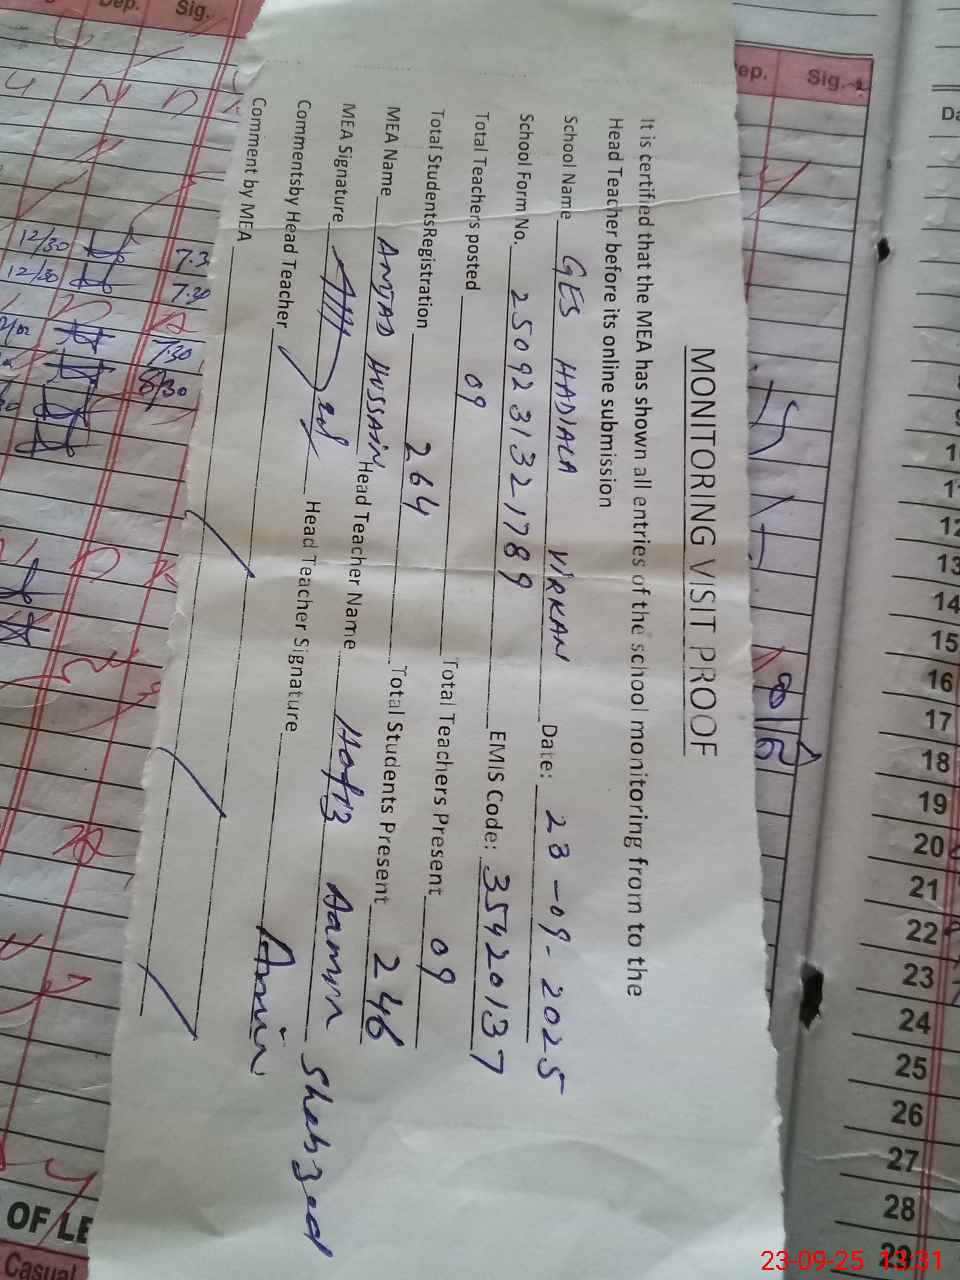 MONITORING VISIT PROOF
It is certified that the MEA has shown all entries of the school monitoring from to the
Head Teacher before its online submission
School Name GES HADIALA VIRKAN Date: 23-09-2025
School Form No. 2509231321789 EMIS Code: 35420137
Total Teachers posted 09 Total Teachers Present 09
Total StudentsRegistration 264 Total Students Present 246
MEA Name AMJAD HUSSAIN Head Teacher Name Hafiz Aamir Shahzad
MEA Signature Head Teacher Signature Amir
Commentsby Head Teacher
Comment by MEA
Dep. Sig.
ep. Sig.
12/30 7.30
12/30 7.30
7/30
8/30
OF LE
Casual
Da
12
13
14
15
16
17
18
19
20
21
22
23
24
25
26
27
28
29
23-09-25 13:31